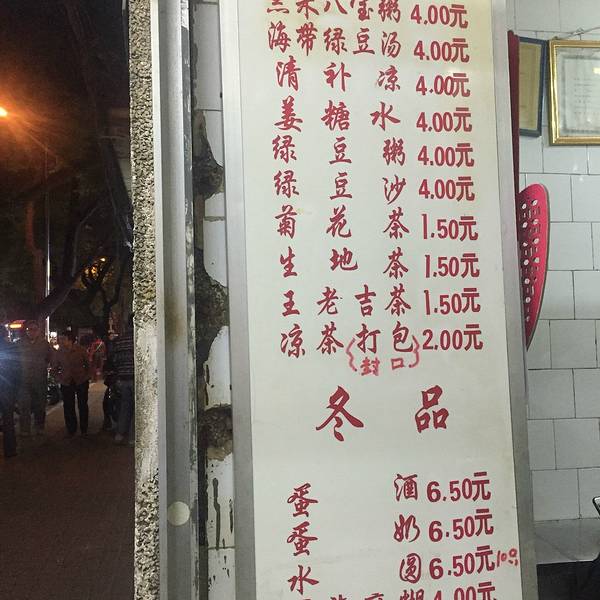 黑米八宝粥 4.00元
海带绿豆汤 4.00元
清补凉 4.00元
姜糖水 4.00元
绿豆粥 4.00元
绿豆沙 4.00元
菊花茶 1.50元
生地茶 1.50元
王老吉茶 1.50元
凉茶打包 2.00元
(封口)
冬品
蛋酒 6.50元
蛋奶 6.50元
水圆 6.50元 10只
糊 4.00元